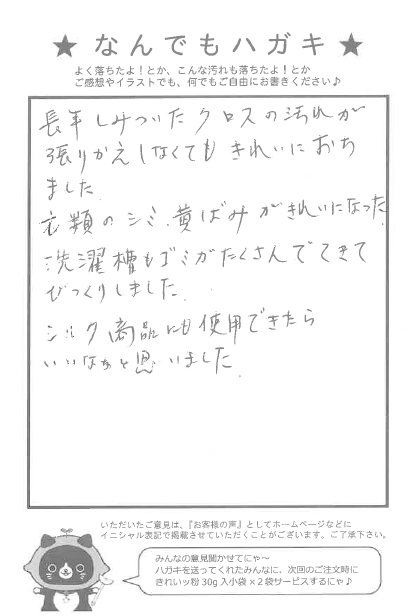 ★なんでもハガキ★
よく落ちたよ！とか、こんな汚れも落ちたよ！とか
ご感想やイラストでも、何でもご自由にお書きください♪
長年しみついたクロスの汚れが
張りかえしなくてもきれいにおち
ました.
衣類のシミ、黄ばみがきれいになった.
洗濯槽もゴミがたくさんでてきて
びっくりしました.
シルク商品にも使用できたら
いいなぁと思いました.
いただいたご意見は、『お客様の声』としてホームページなどに
イニシャル表記で掲載させていただくことがございます。ご了承下さい。
みんなの意見聞かせてにゃ〜
ハガキを送ってくれたみんなに、次回のご注文時に
きれいッ粉30g入小袋×2袋サービスするにゃ♪